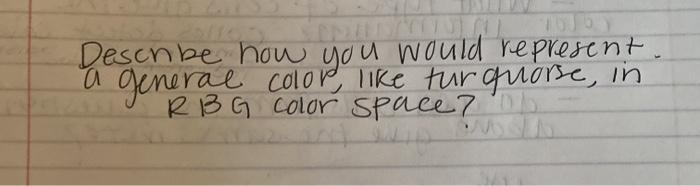 Describe how you would represent.
a general color, like turquoise, in
RBG color space?